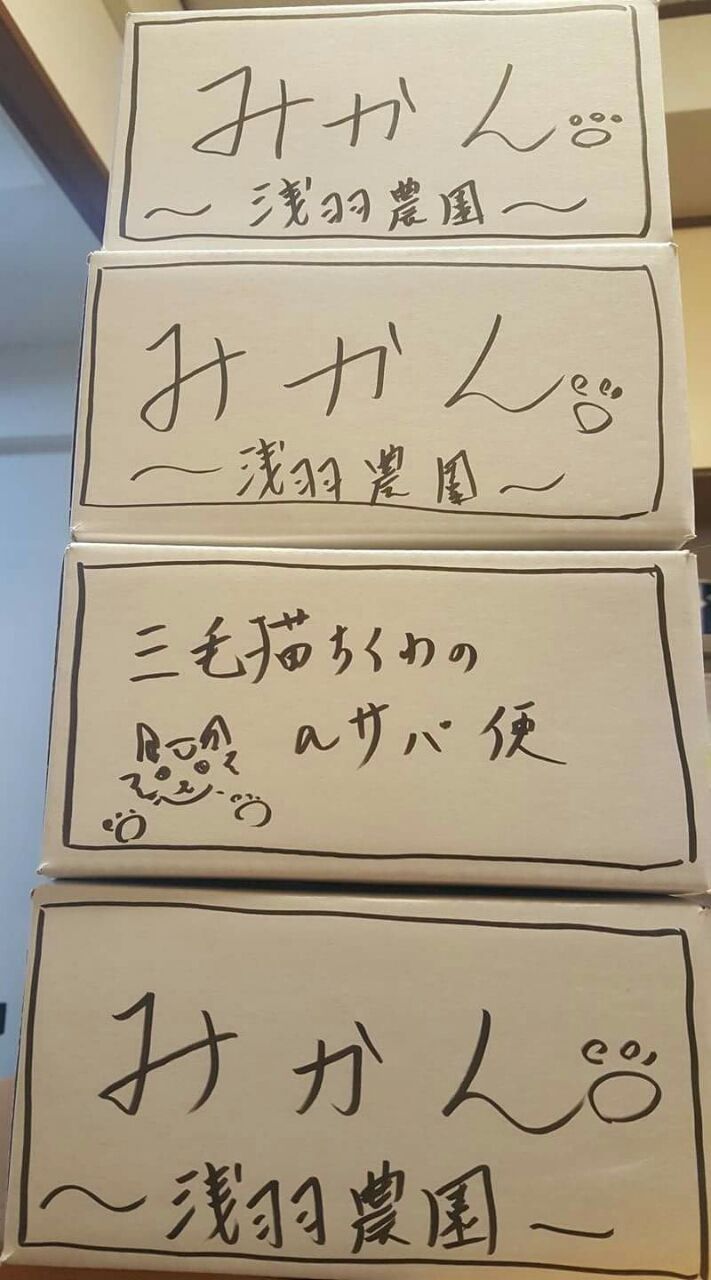 みかん
～浅羽農園～
みかん
～浅羽農園～
三毛猫ちくわの
aサバ便
みかん
～浅羽農園～